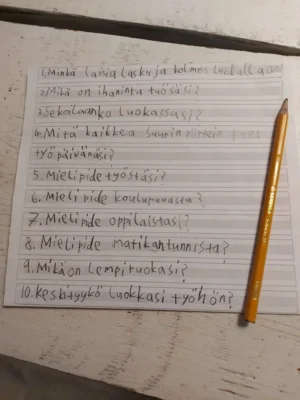 1. Minkä laisia laskuja kolmos luokalla on?
2. Mikä on ihaninta työsäsi?
3. Sekoilaanko luokassasi?
4. Mitä kaikkea suunnittein
työpäivänäsi?
5. Mielipide työstäsi?
6. Mielipide koulupuvusta?
7. Mielipide oppilaistasi?
8. Mielipide matikantunnista?
9. Mikä on lempiruokasi?
10. Keskityykö luokkasi työhön?